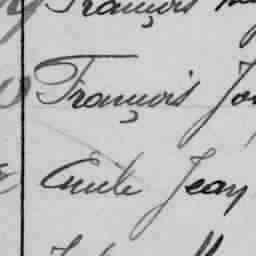 François
François Jo
Emile Jean